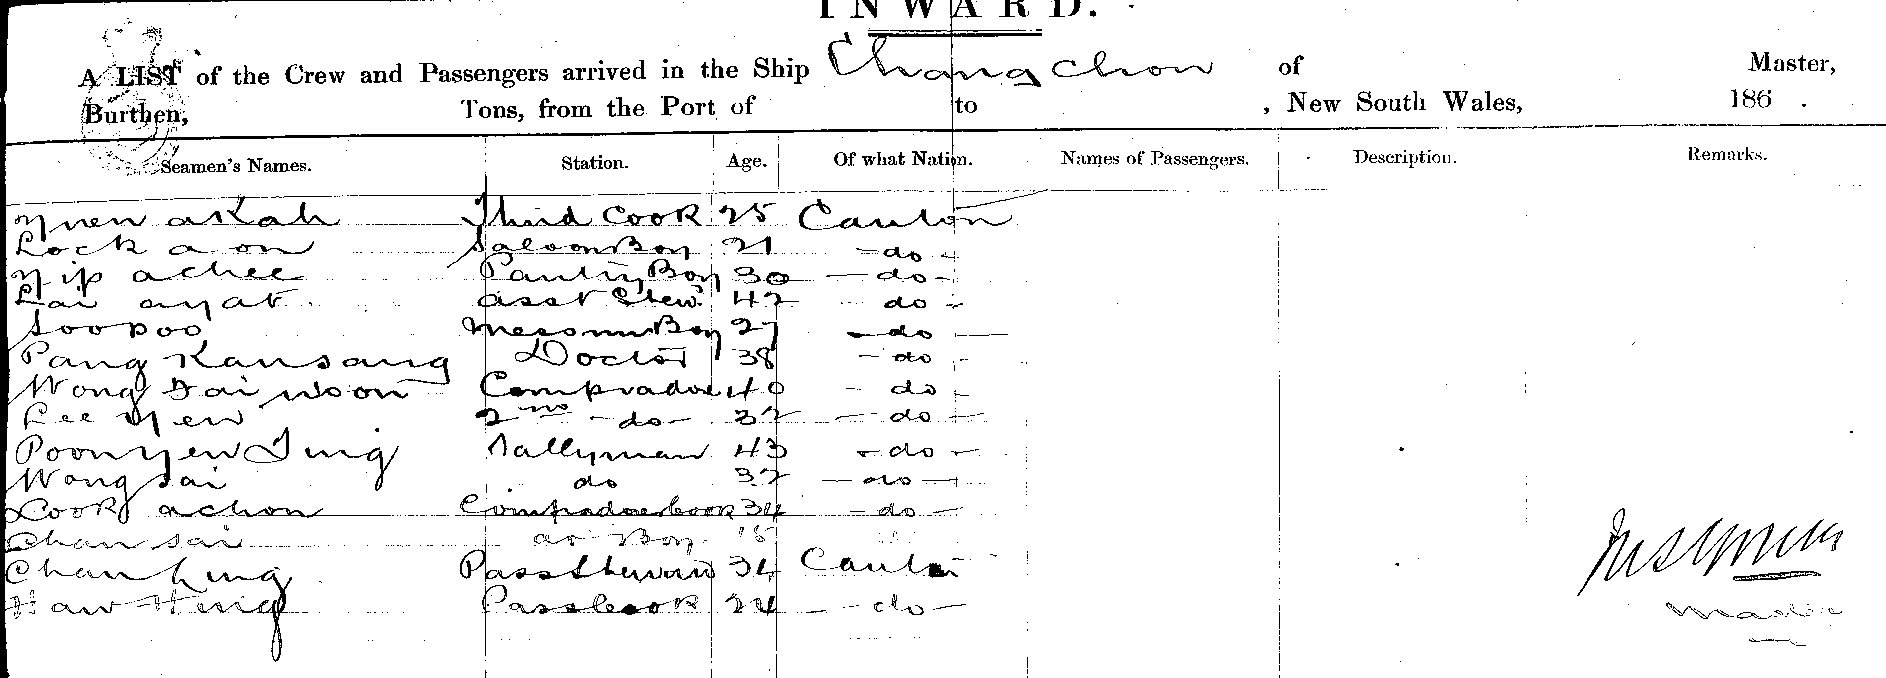 INWARD.
A LIST of the Crew and Passengers arrived in the Ship Changchow of Master,
Burthen, Tons, from the Port of to , New South Wales, 186 .
Seamen's Names. Station. Age. Of what Nation. Names of Passengers. Description. Remarks.
Yuen aKah Third Cook 25 Canton
Lock a on Saloon Boy 21 -do-
Yip achee Pantry Boy 30 -do-
Lai ayat asst Stew. 42 do-
Soo poo Messrm Boy 27 -do-
Pang Kansang Doctor 38 -do-
Wong Sai woon Compradore 40 -do-
Lee Yew 2nd -do- 32 -do-
Poon Yew Ting Tallyman 43 -do-
Wong Sai do 32 -do-
Look achon Compradore Cook 34 -do-
Chan Sai do Boy 15
Chan hing Pass Steward 34 Canton
Haw Hing Pass Cook 24 -do-
Master